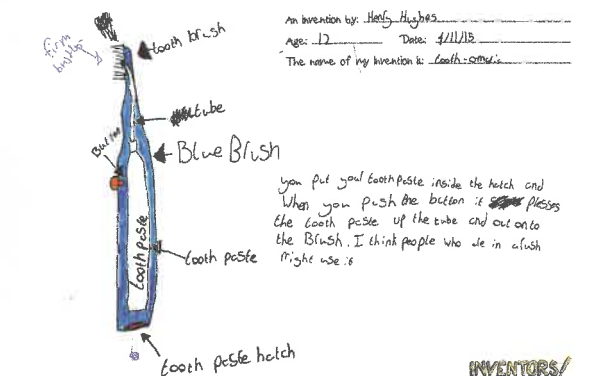 An invention by: Henry Hughes
Age: 12 Date: 4/11/15
The name of my invention is: tooth-omatic
firm
bristles
tooth brush
tube
Button
Blue Brush
toothpaste
tooth paste
tooth paste hatch
you put your toothpaste inside the hatch and
When you push the button it presses
the tooth paste up the tube and out onto
the Brush. I think people who are in a rush
might use it
INVENTORS!